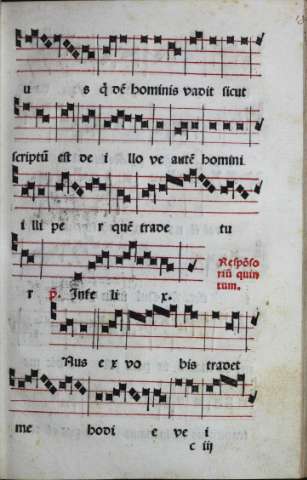 u s q̄ dē hominis vadit sicut
scriptū est de i llo ve autē homini
i lli pe r quē trade tu
r p̄. Infe li x.
Respōso
riū quin
tum.
Aus e x vo bis tradet
me hodi e ve i
c iij